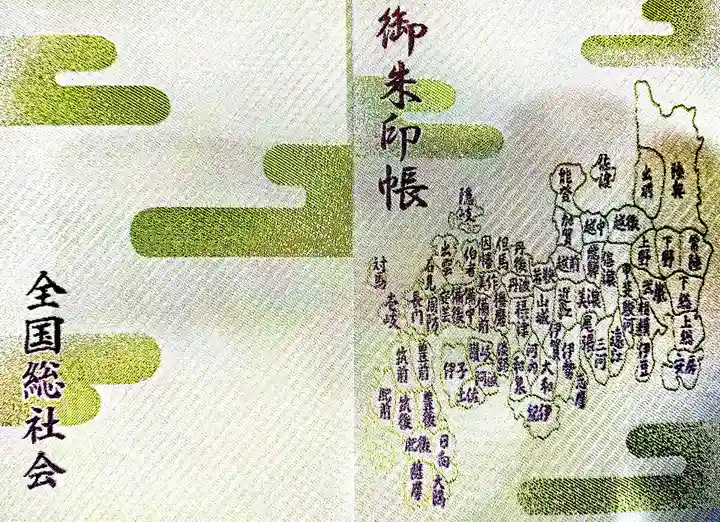 御朱印帳
全国総社会
陸奥
出羽
佐渡
能登
加賀
越中
越後
常陸
下野
上野
信濃
飛騨
越前
若狭
下総
上総
安房
武蔵
相模
伊豆
甲斐
駿河
遠江
三河
尾張
美濃
近江
伊賀
伊勢
志摩
山城
大和
河内
和泉
摂津
紀伊
丹後
丹波
但馬
播磨
因幡
美作
備前
備中
備後
伯耆
出雲
隠岐
石見
安芸
周防
長門
讃岐
阿波
伊予
土佐
淡路
対馬
壱岐
筑前
筑後
豊前
豊後
肥前
肥後
日向
大隅
薩摩